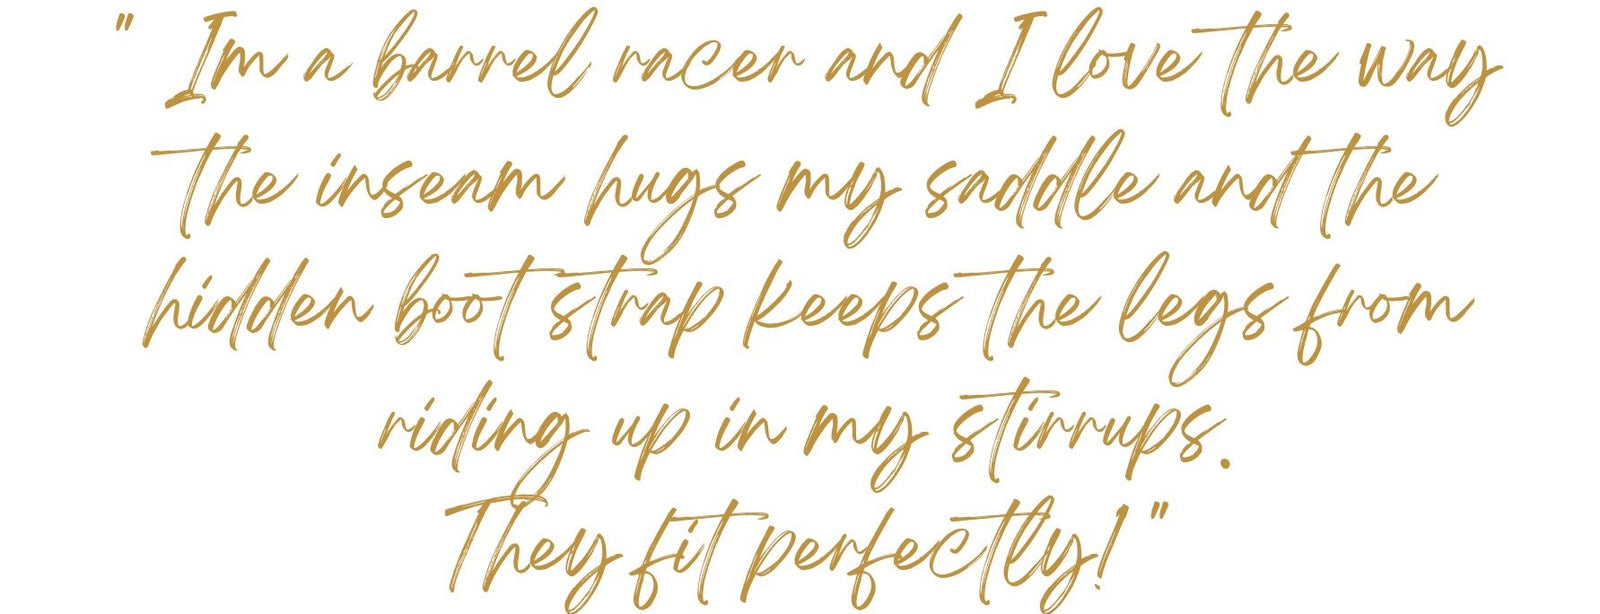 " Im a barrel racer and I love the way
the inseam hugs my saddle and the
hidden boot strap keeps the legs from
riding up in my stirrups.
They fit perfectly! "